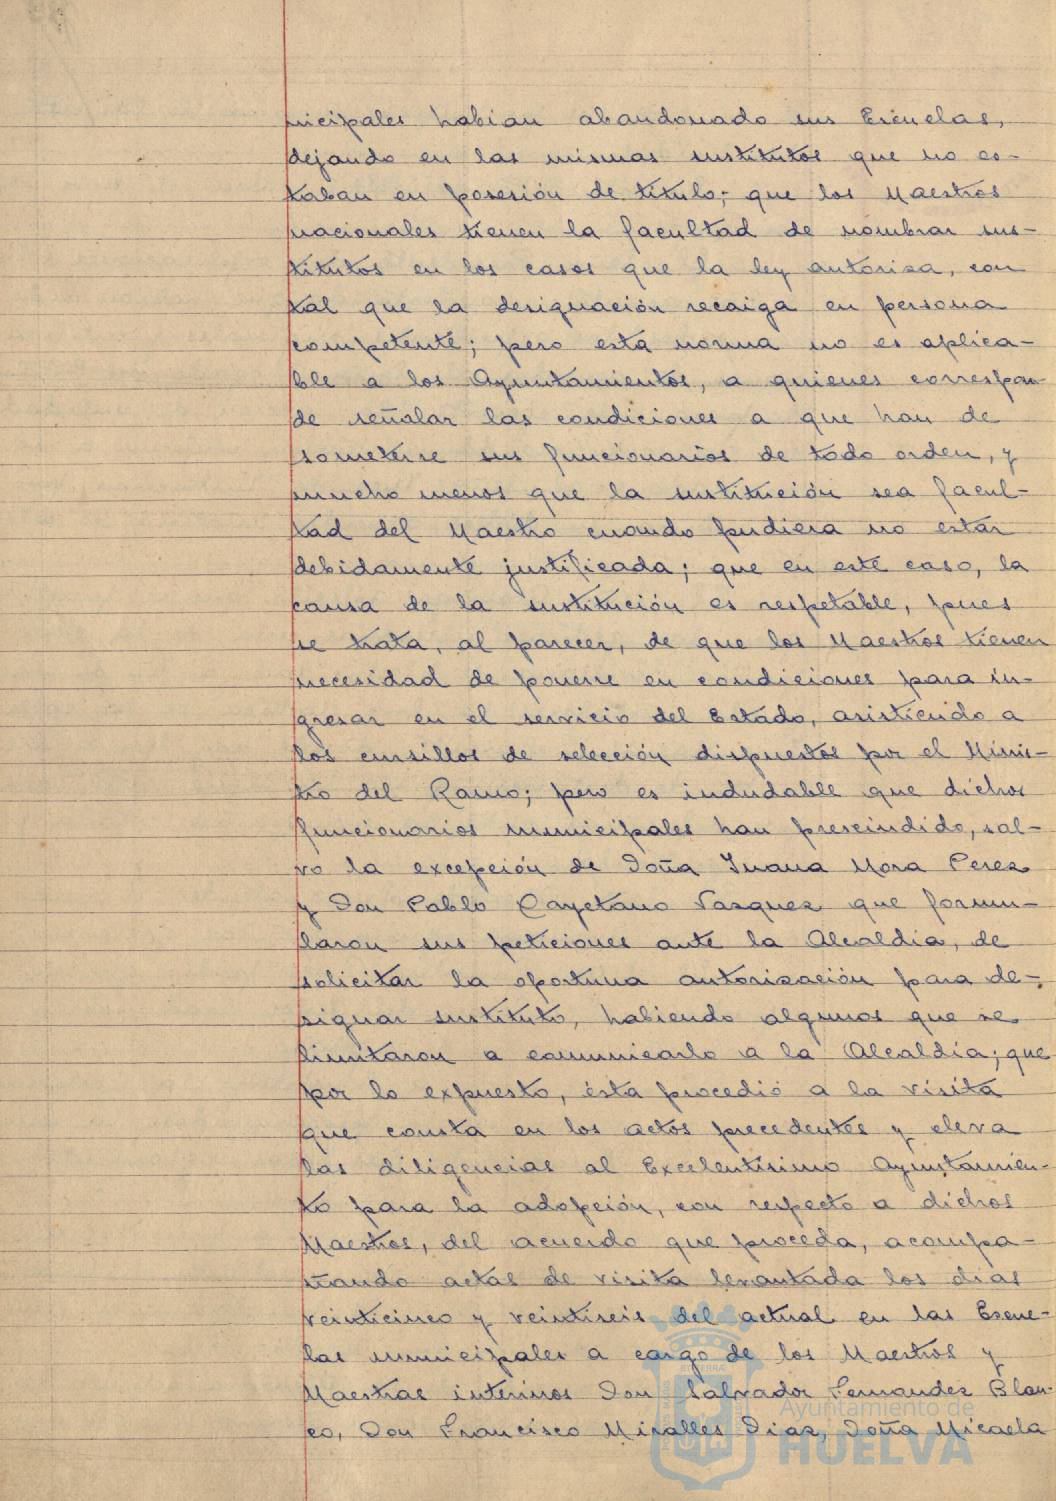 nicipales habian abandonado sus Escuelas,
dejando en las mismas sustitutos que no es-
taban en posesión de titulo; que los Maestros
nacionales tienen la facultad de nombrar sus-
titutos en los casos que la ley autoriza, con
tal que la designación recaiga en persona
competente; pero esta norma no es aplica-
ble a los Ayuntamientos, a quienes correspon-
de señalar las condiciones a que han de
someterse sus funcionarios de todo orden, y
mucho menos que la sustitución sea facul-
tad del Maestro cuando pudiera no estar
debidamente justificada; que en este caso, la
causa de la sustitución es respetable, pues
se trata, al parecer, de que los Maestros tienen
necesidad de ponerse en condiciones para in-
gresar en el servicio del Estado, asistiendo a
los cursillos de selección dispuestos por el Minis-
tro del Ramo; pero es indudable que dichos
funcionarios municipales han prescindido, sal-
vo la excepción de Doña Juana Mora Perez
y Don Pablo Cayetano Vazquez que formu-
laron sus peticiones ante la Alcaldia, de
solicitar la oportuna autorización para de-
signar sustituto, habiendo algunos que se
limitaron a comunicarlo a la Alcaldia; que
por lo expuesto, ésta procedió a la visita
que consta en los actos precedentes y eleva
las diligencias al Excelentisimo Ayuntamien-
to para la adopción, con respecto a dichos
Maestros, del acuerdo que proceda, acompa-
ñando actas de visita levantada los dias
veinticinco y veintiseis del actual en las Escue-
las municipales a cargo de los Maestros y
Maestras interinos Don Salvador Fernandez Blan-
co, Don Francisco Miralles Diaz, Doña Micaela
Ayuntamiento de
HUELVA